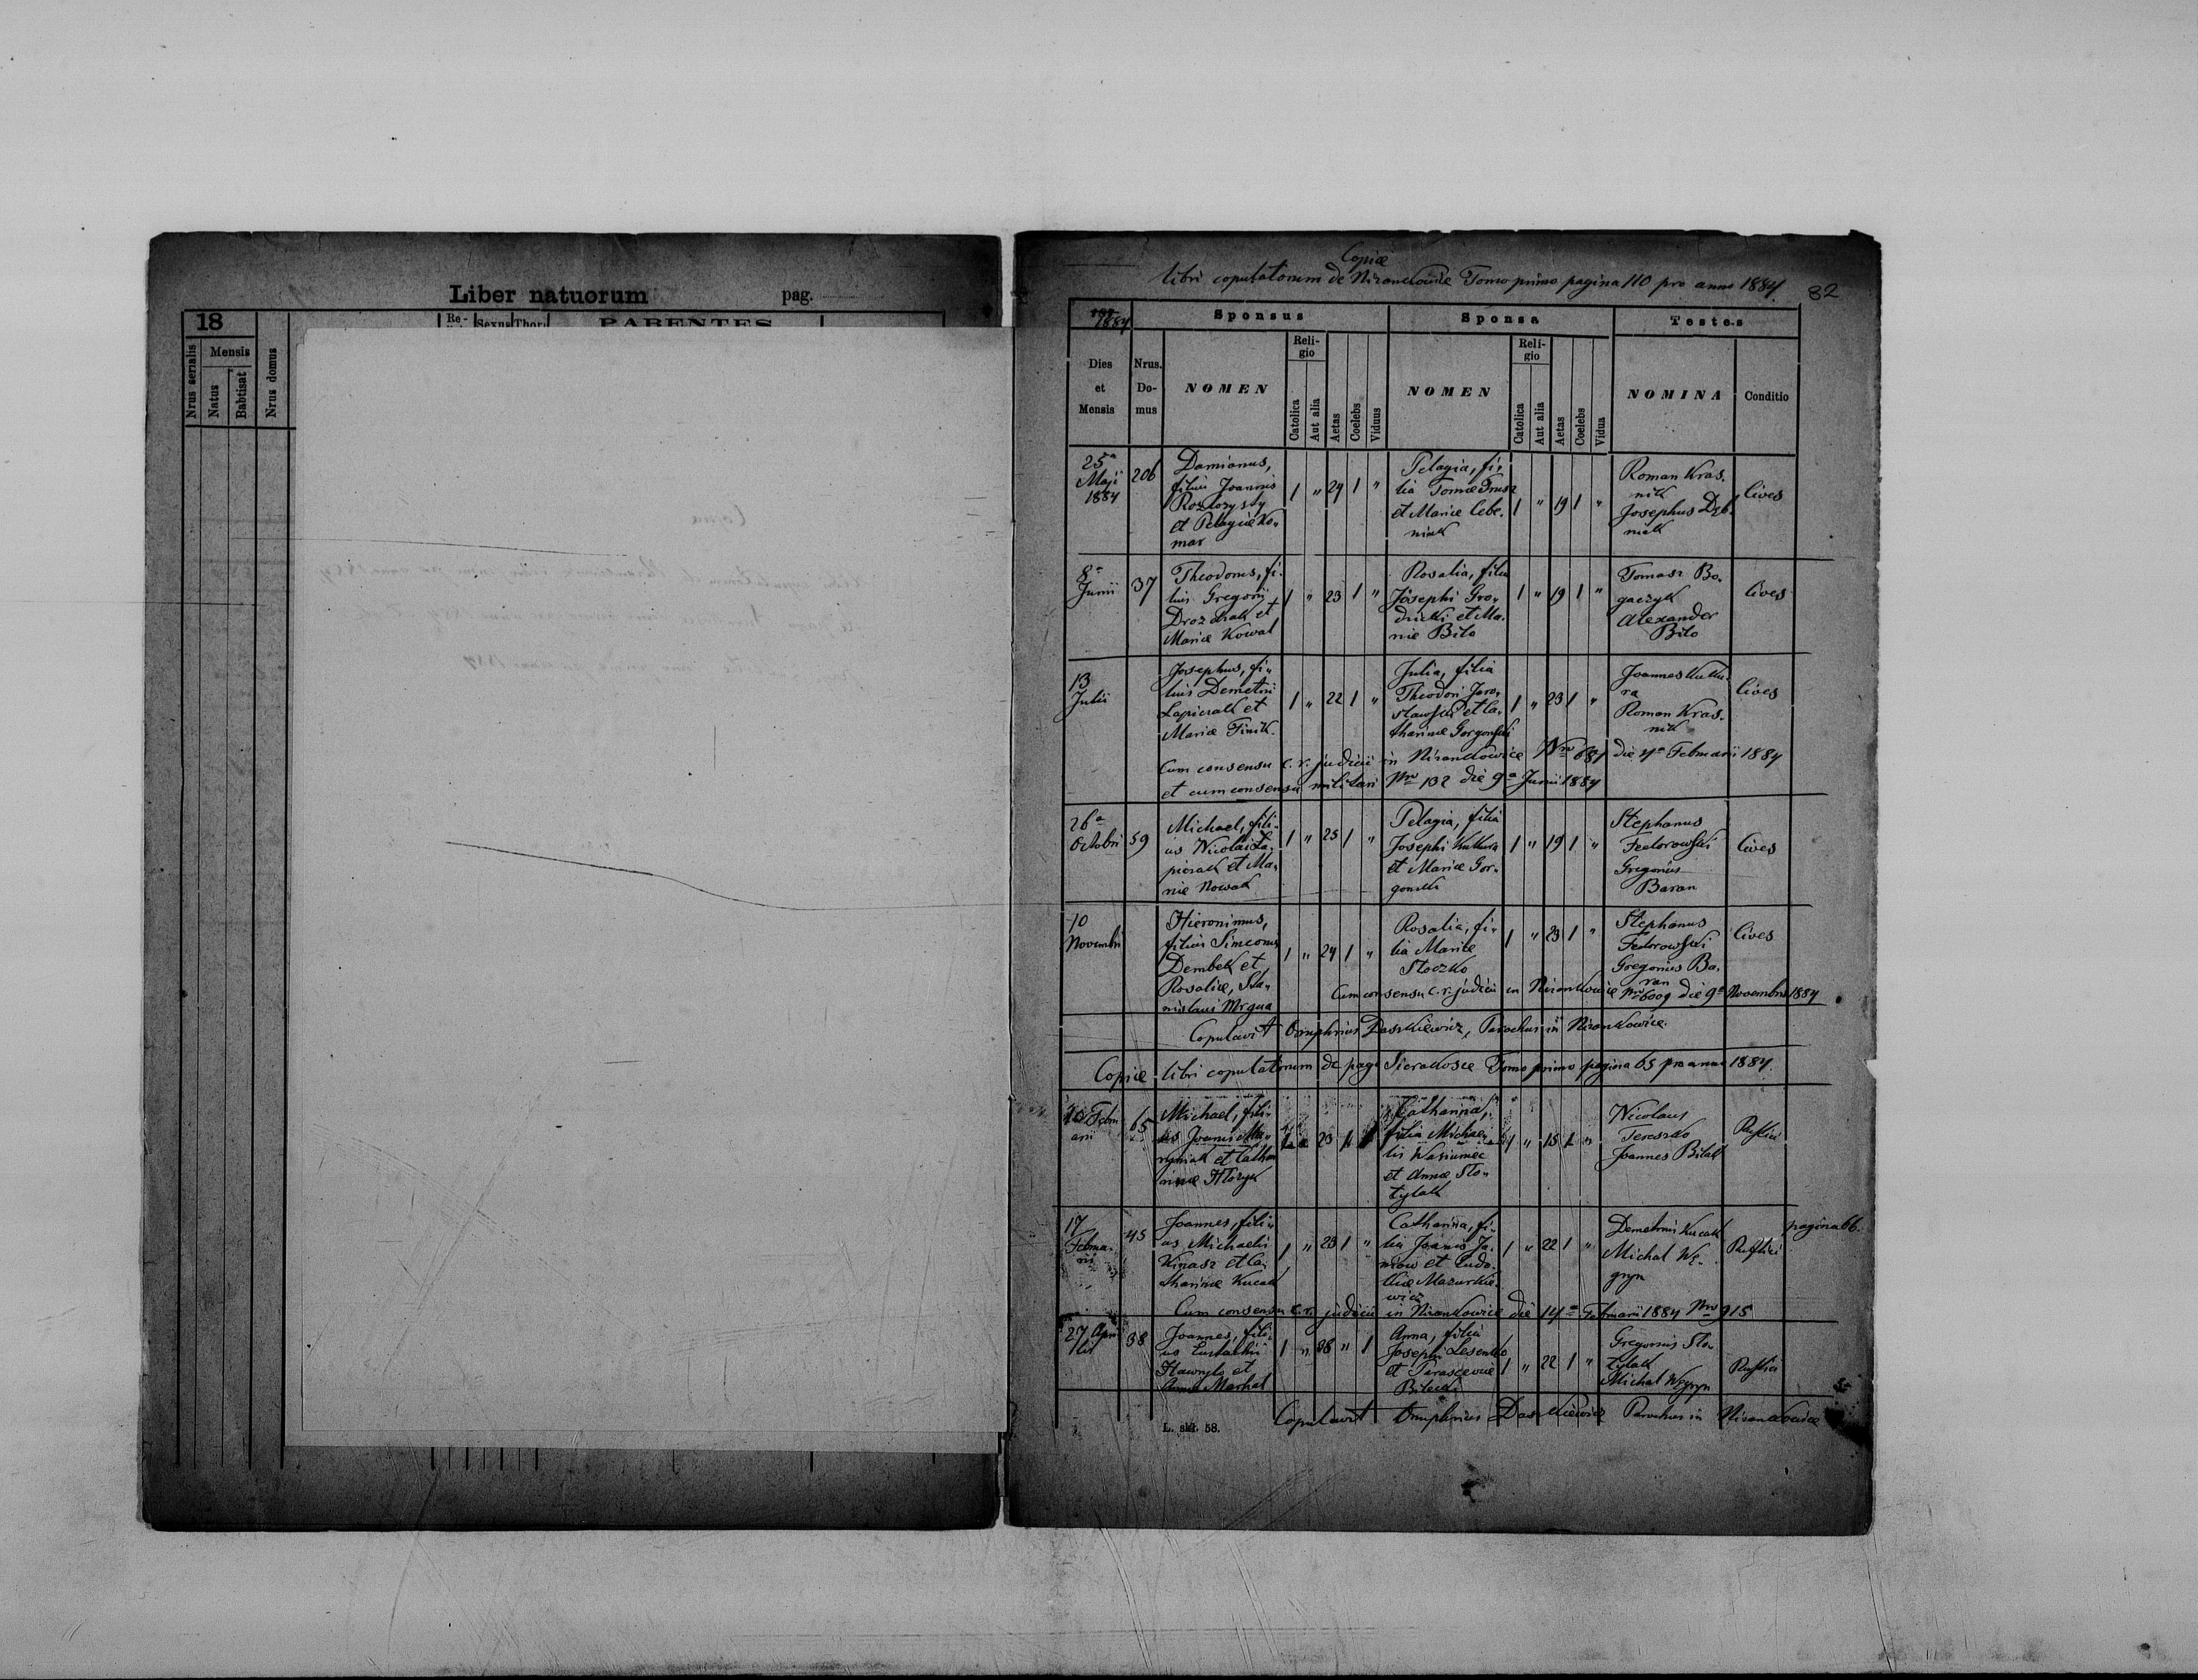 Liber natuorum pag.
18
Re-
Sexus
Thori
PARENTES
Nrus serialis
Mensis
Natus
Babtisat
Nrus domus
Copiæ
libri copulatorum de Nizankowice Tomo primo pagina 110 pro anno 1884.
82
1884
Sponsus
Sponsa
Testes
Dies et Mensis
Nrus. Do- mus
NOMEN
Reli- gio
Catolica
Aut alia
Aetas
Coelebs
Viduus
NOMEN
Reli- gio
Catolica
Aut alia
Aetas
Coelebs
Vidua
NOMINA
Conditio
25a
Maji
1884
206
Damianus,
filius Joannis
Roztorysty
et Pelagiæ Ko-
mar
1 " 29 1 "
Pelagia, fi-
lia Tomæ Prusz
et Mariæ Cebe-
niak
1 " 19 1 "
Roman Kras-
nik
Josephus Dęb-
niak
Cives
8a
Junii
37
Theodorus, fi-
lius Gregorij
Drozdiak et
Mariæ Kowal
1 " 23 1 "
Rosalia, filia
Josephi Gro-
dzicki et Ma-
riæ Bilo
1 " 19 1 "
Tomasz Bo-
gaczyk
Alexander
Bilo
Cives
13
Julii
Josephus, fi-
lius Demetrii
Łapiczak et
Mariæ Finik.
1 " 22 1 "
Julia, filia
Theodori Jaro-
sławski et Ca-
tharinæ Gorgonski
1 " 23 1 "
Joannes Kuku-
ra
Roman Kras-
nik
Cives
Cum consensu c. r. judicii in Nizankowice Nro 681 die 4a Februarii 1884
et cum consensu militari Nro 132 die 9a Junii 1884
26a
Octobri
59
Michael, fili-
us Nicolai Ła-
piczak et Ma-
riæ Nowak
1 " 25 1 "
Pelagia, filia
Josephi Kukura
et Mariæ Gor-
gonski
1 " 19 1 "
Stephanus
Fedorowski
Gregorius
Baran
Cives
10
Novembri
Hieronimus,
filius Simeonis
Dembek et
Rosaliæ, Sta-
nislaus
1 " 24 1 "
Rosalia, fi-
lia Mariæ
Stoczko
1 " 23 1 "
Stephanus
Fedorowski
Gregorius Ba-
ran
Cives
Cum consensu c. r. judicii in Nizankowice Nro 6009 die 9a Novembris 1884
Copulavit Onuphrius Daszkiewicz, Parochus in Nizankowice.
Copiæ libri copulatorum de pago Sierakosce Tomo primo pagina 65 pro anno 1884.
Febru
arii
65
Michael, fili-
us Joannis Ma-
ryniak et Catha
rinæ
23
Catharina,
filia Michae-
lis Wasiuniec
et Annæ Sło-
tylak
1 "
Nicolaus
Tereszko
Joannes Bilak
Rustici
17
Februa-
rii
45
Joannes, fili-
us Michaelis
Kinasz et Ca-
tharinæ Kucak
1 " 23 1 "
Catharina, fi-
lia Joannis Ja-
niow et Eudo-
kiæ Mazurkie-
wicz
1 " 22 1 "
Demetrius Kucak
Michal Wę-
gryn
Rustici
pagina 66.
Cum consensu c. r. judicii in Nizankowice die 14a Februarii 1884 Nro 915
27 Apri
lis
38
Joannes, fili-
us Eustachii
Hawryło et
Annæ Marhal
1 " 38 " 1
Anna, filia
Josephi Lesenko
et Parasceviæ
Bilecki
1 " 22 1 "
Gregorius Sło-
tylak
Michal Węgryn
Rustici
Copulavit Onuphrius Daszkiewicz Parochus in Nizankowice
L. skł. 58.